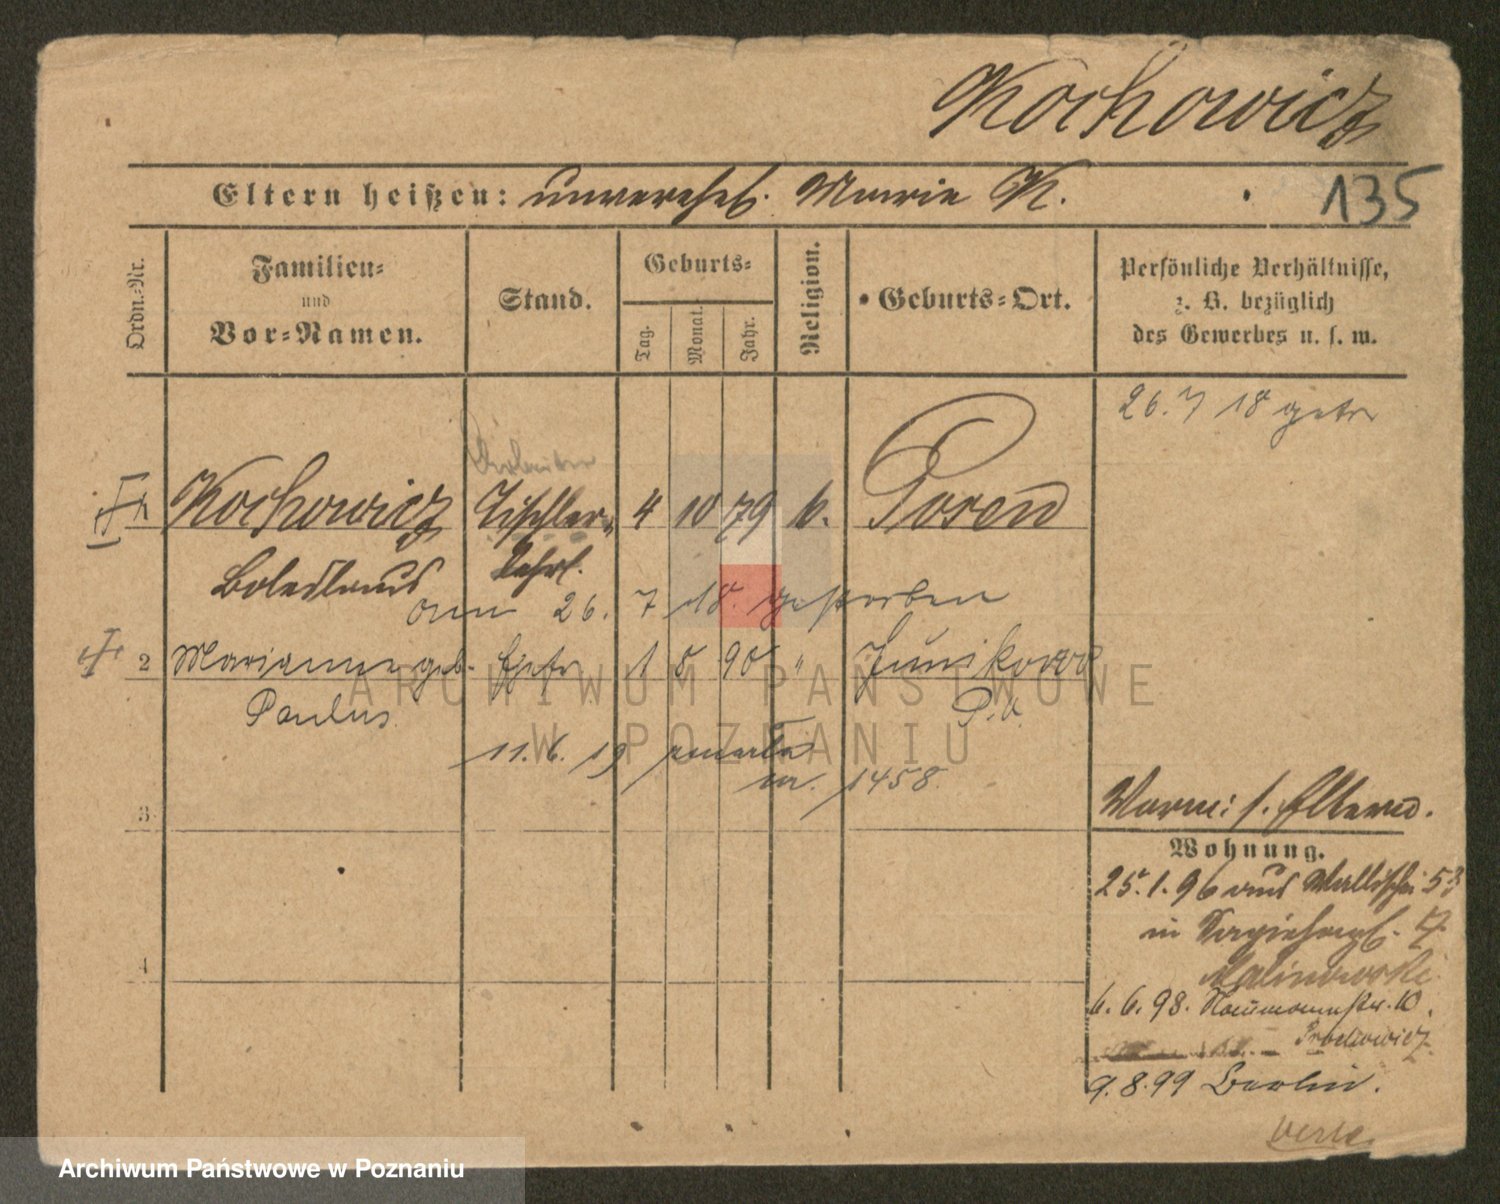 Kochowicz
Eltern heißen: unverehel. Marie K.
135
Ordn.-Nr.
Familien-
und
Vor-Namen.
Stand.
Geburts-
Tag.
Monat.
Jahr.
Religion.
Geburts-Ort.
Persönliche Verhältnisse,
z. B. bezüglich
des Gewerbes u. s. w.
26. 7 18 gestr
Arbeiter
Kochowicz Tischler- 4 10 79 k. Posen
Boleslaus Lehrl.
am 26. 7 18. gestorben
2 Marianna geb. Ehefr 1 8 90 " Junikowo
Paulus P.O.
11. 6. 19 zmarła
nr. 1458.
3
Vorm: s. Eltern.
Wohnung.
25.1.96 aus Wallischei 53
in Sagiehergst. 7
Malinowski
4
6. 6. 98. Naumannstr. 10.
Prochowicz
9.8.99 Berlin.
ARCHIWUM PAŃSTWOWE
W POZNANIU
Archiwum Państwowe w Poznaniu